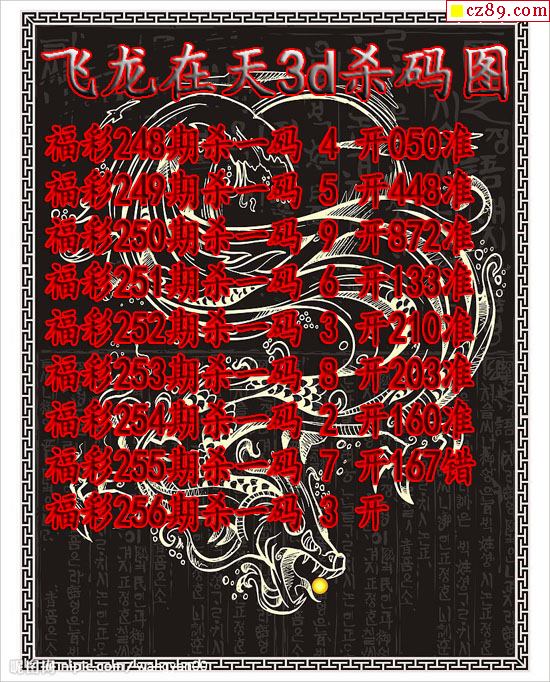 cz89.com
飞龙在天3d杀码图
福彩248期杀一码 4 开050准
福彩249期杀一码 5 开448准
福彩250期杀一码 9 开872准
福彩251期杀一码 6 开133准
福彩252期杀一码 3 开210准
福彩253期杀一码 8 开203准
福彩254期杀一码 2 开160准
福彩255期杀一码 7 开167错
福彩256期杀一码 3 开